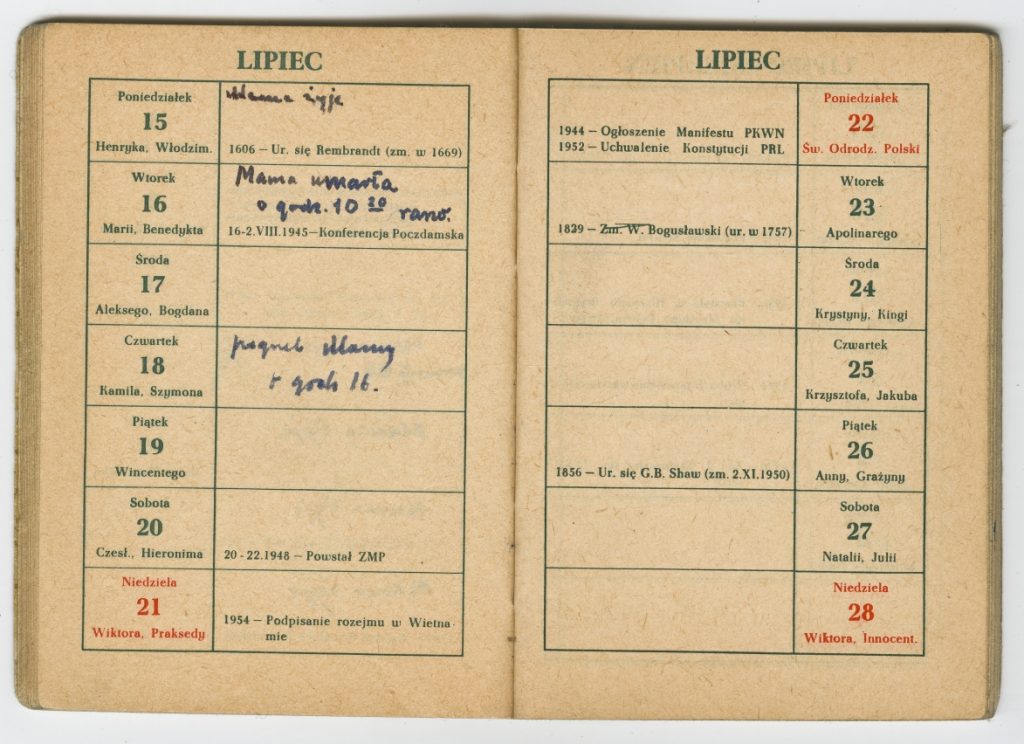 LIPIEC
Poniedziałek
15
Henryka, Włodzim.
Mama żyje
1606 – Ur. się Rembrandt (zm. w 1669)
Wtorek
16
Marii, Benedykta
Mama umarła
o godz. 10 20 rano.
16-2.VIII.1945 – Konferencja Poczdamska
Środa
17
Aleksego, Bogdana
Czwartek
18
Kamila, Szymona
pogrzeb Mamy
godz 16.
Piątek
19
Wincentego
Sobota
20
Czesł., Hieronima
20-22.1948 – Powstał ZMP
Niedziela
21
Wiktora, Praksedy
1954 – Podpisanie rozejmu w Wietna-
mie
LIPIEC
1944 – Ogłoszenie Manifestu PKWN
1952 – Uchwalenie Konstytucji PRL
Poniedziałek
22
Św. Odrodz. Polski
1829 – Zm. W. Bogusławski (ur. w 1757)
Wtorek
23
Apolinarego
Środa
24
Krystyny, Kingi
Czwartek
25
Krzysztofa, Jakuba
1856 – Ur. się G.B. Shaw (zm. 2.XI.1950)
Piątek
26
Anny, Grażyny
Sobota
27
Natalii, Julii
Niedziela
28
Wiktora, Innocent.